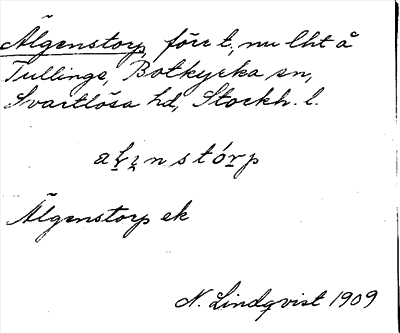 Älgenstorp, förr t, nu lht å
Tullinge, Botkyrka sn,
Svartlösa hd, Stockh. l.
Älgenstorp ek
N. Lindqvist 1909